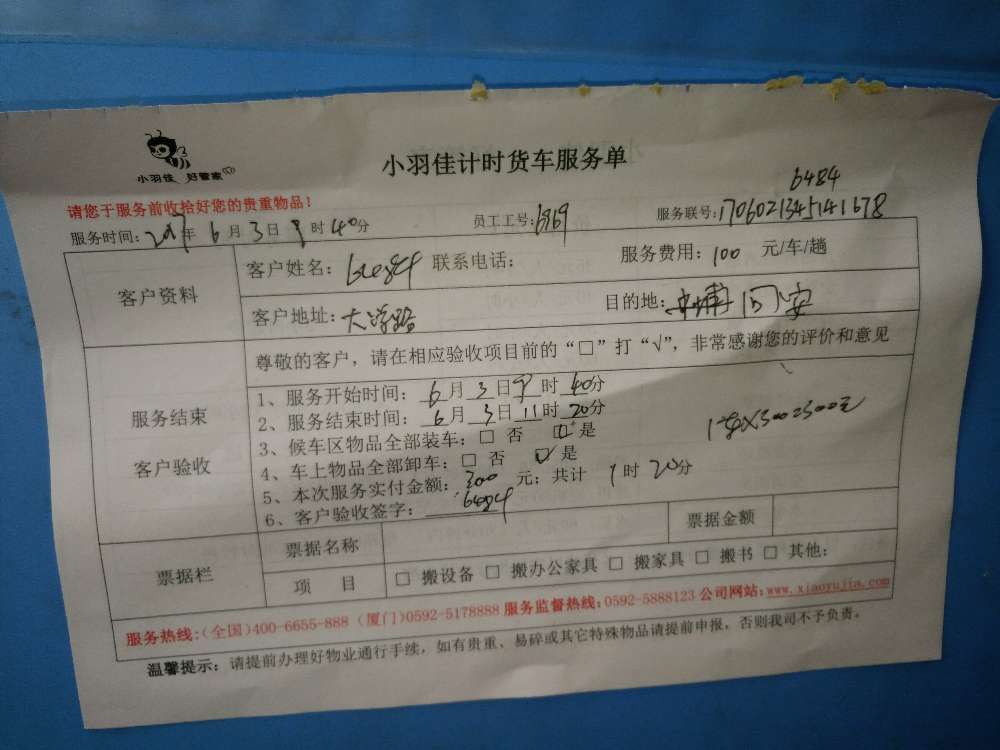 小羽佳 好管家
小羽佳计时货车服务单
6484
请您于服务前收拾好您的贵重物品！
服务时间：2017年6月3日9时40分 员工工号：6969 服务联号：170602134514 1678
客户资料
客户姓名： 联系电话： 服务费用：100 元/车/趟
客户地址：大学路 目的地：同安
尊敬的客户，请在相应验收项目前的“□”打“√”，非常感谢您的评价和意见
服务结束
客户验收
1、服务开始时间：6月3日9时40分
2、服务结束时间：6月3日11时20分
3、候车区物品全部装车：□ 否 ☑ 是
4、车上物品全部卸车：□ 否 ☑ 是
5、本次服务实付金额：300 元；共计 1时20分
6、客户验收签字：6484
票据栏
票据名称 票据金额
项 目 □ 搬设备 □ 搬办公家具 □ 搬家具 □ 搬书 □ 其他：
服务热线：(全国)400-6655-888 (厦门)0592-5178888 服务监督热线：0592-5888123 公司网站：www.xiaoyujia.com
温馨提示：请提前办理好物业通行手续，如有贵重、易碎或其它特殊物品请提前申报，否则我司不予负责。